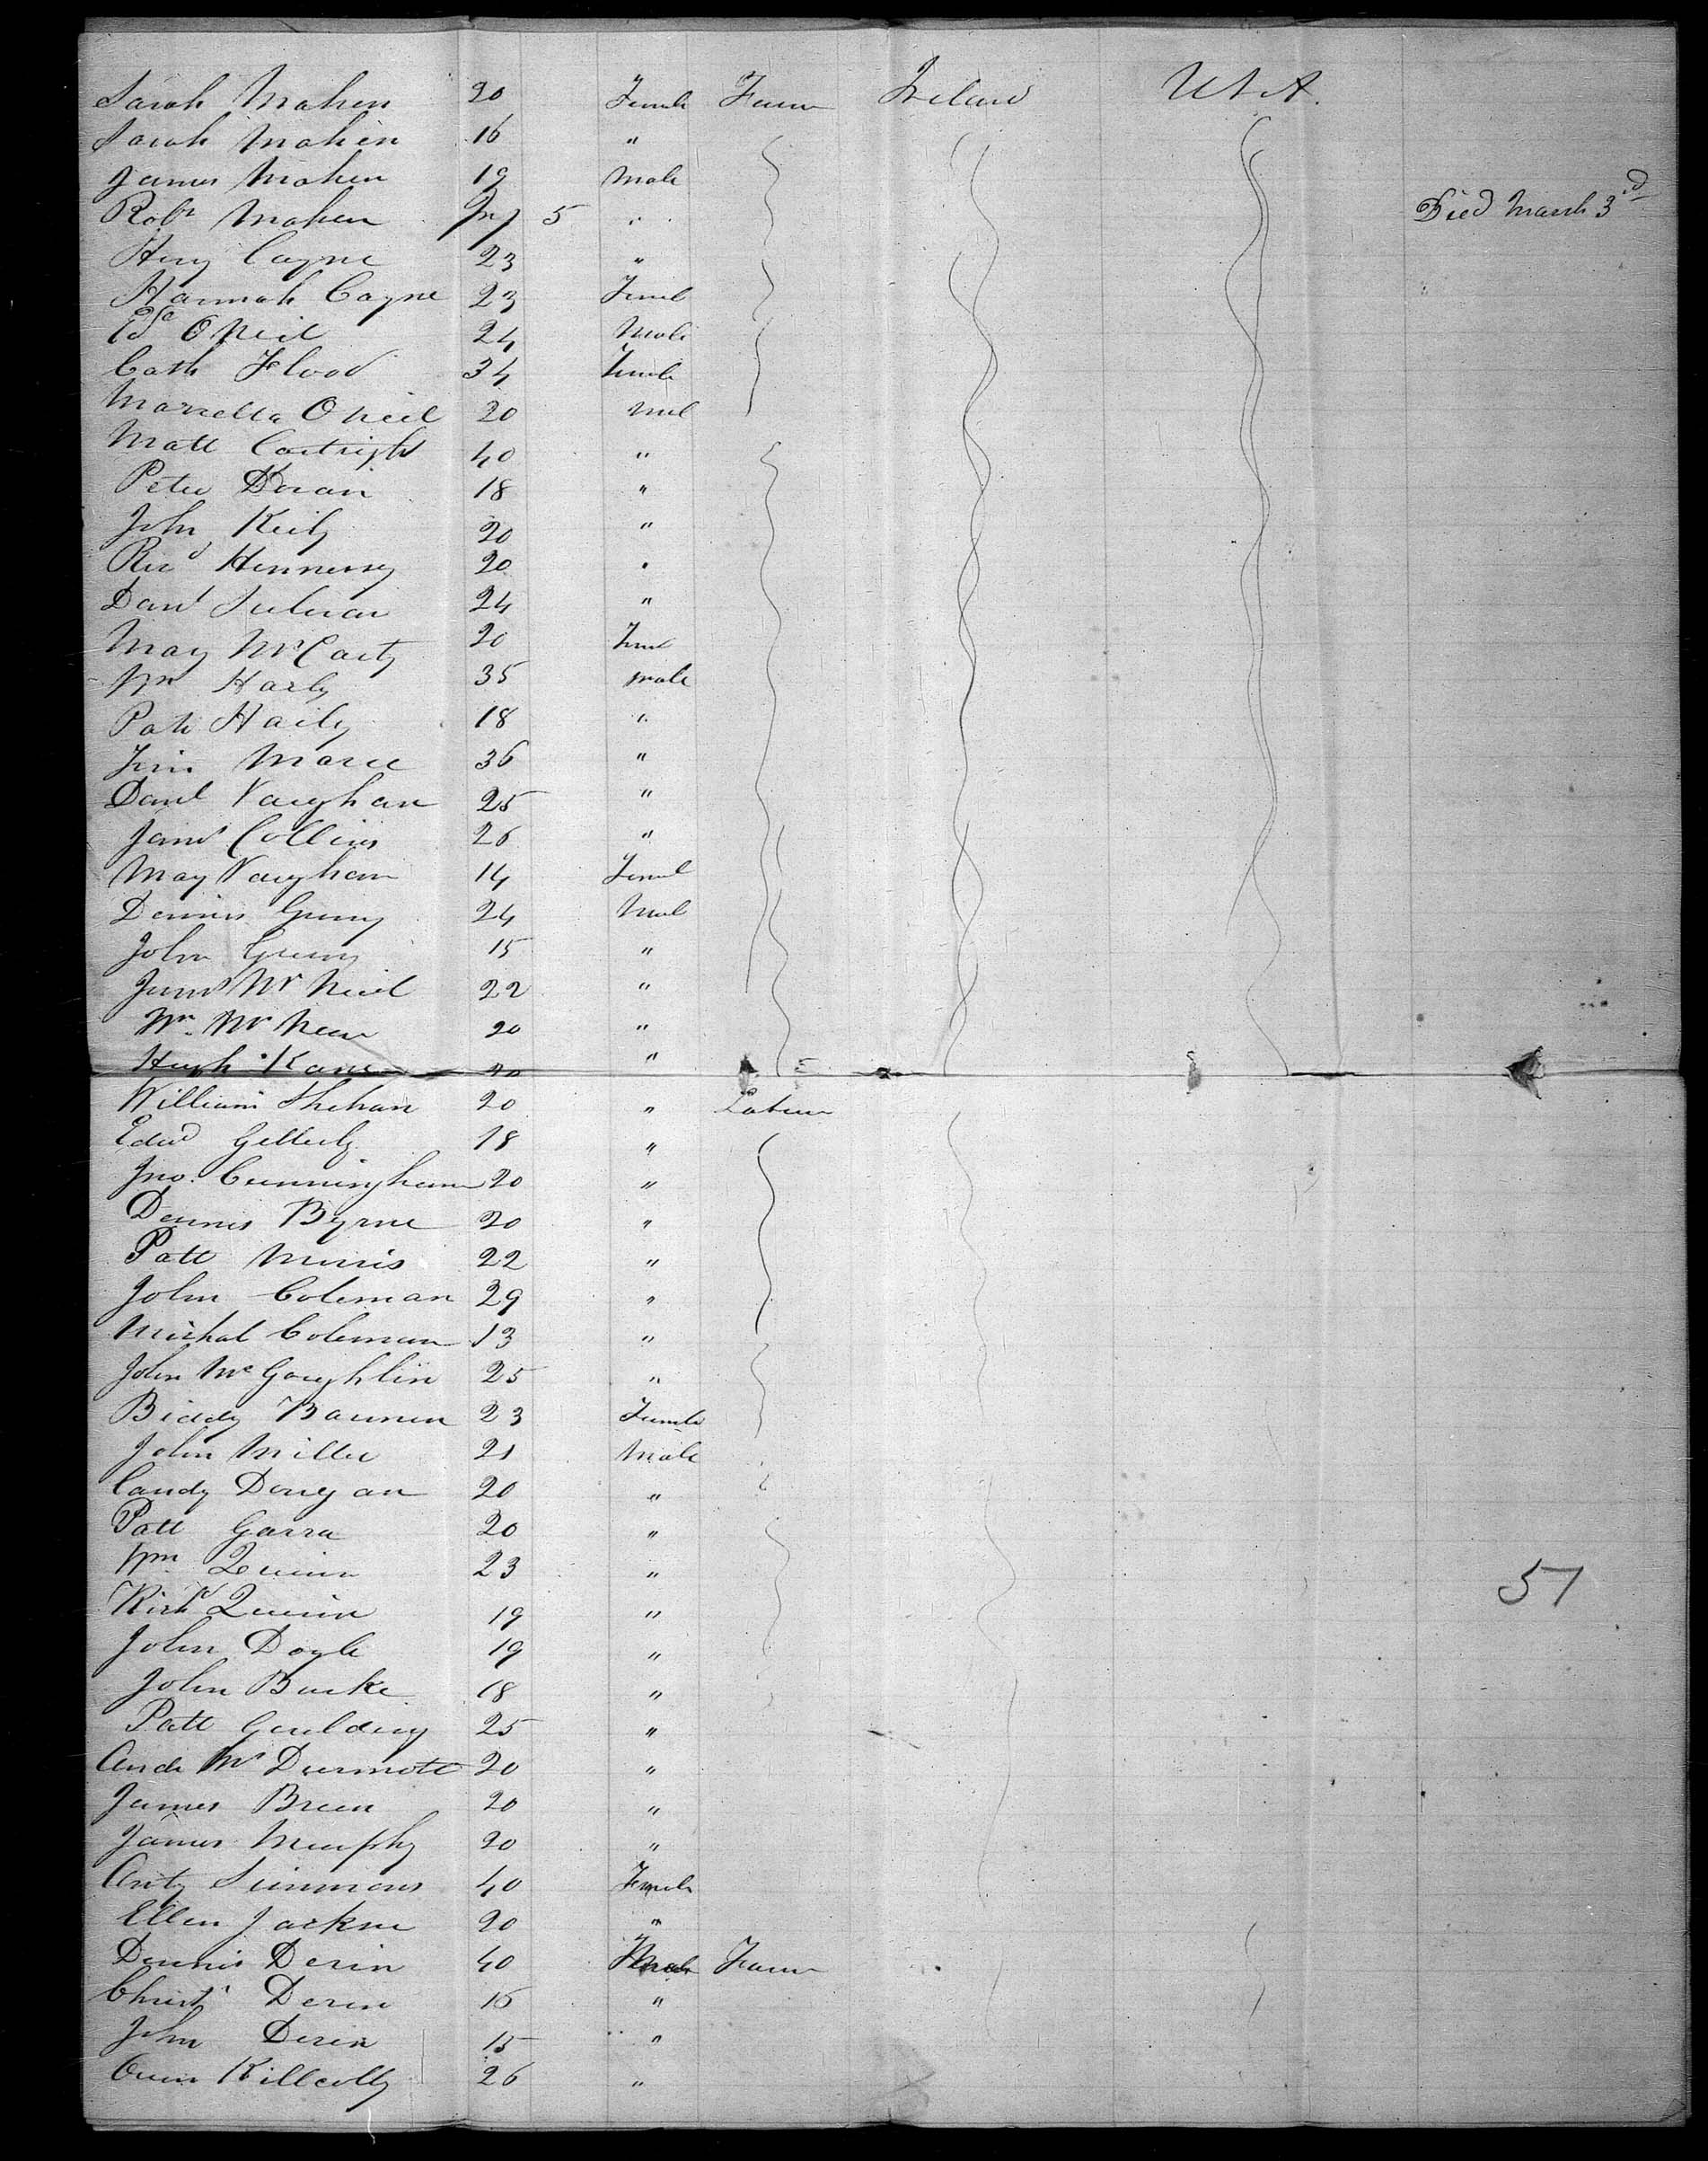 Sarah Mahen 20 Female Farm Ireland U S A.
Sarah Mahen 16 "
James Mahen 19 Male
Robt Mahen Inf 5 " Died March 3rd
Heny Cayne 23 "
Hannah Cayne 23 Femel
ONeil 24 Male
Cath Flood 34 Female
Marcella O Neil 20 Mal
Matt Cartright 40 "
Peter Doran 18 "
John Keily 20 "
Ricd Hennessy 20 "
Danl Sulivan 24 "
Mary McCarty 20 Feml
Wm Harly 35 male
Patk Haily 18 "
36 "
Danl Vaughan 25 "
Jams Collins 26 "
Mary Vaughan 14 Femel
Dennis 24 Mal
John 15 "
Jams Mc Neil 22 "
Wm Mc 20 "
Hugh Kane "
William Shehan 20 " Labeur
Edwd 18 "
Jno. Cunningham 20 "
Dennis Byrne 20 "
Patt Morris 22 "
John Coleman 29 "
Michal Coleman 13 "
John Mc Goughlin 25 "
Biddy Bannen 23 Female
John Miller 21 Male
Candy Donegan 20 "
Patt Garra 20 "
Wm Quinn 23 "
Richd Quinn 19 " 57
John Doyle 19 "
John Burke 18 "
Patt Goulding 25 "
Andr Mc Dermott 20 "
James Breen 20 "
James Murphy 20 "
Anty Simmons 40 Female
Ellen Jackson 20 "
Dennis Derin 40 Male Farm
Christr Deren 16 "
John Deren 15 "
Owen Killcolly 26 "